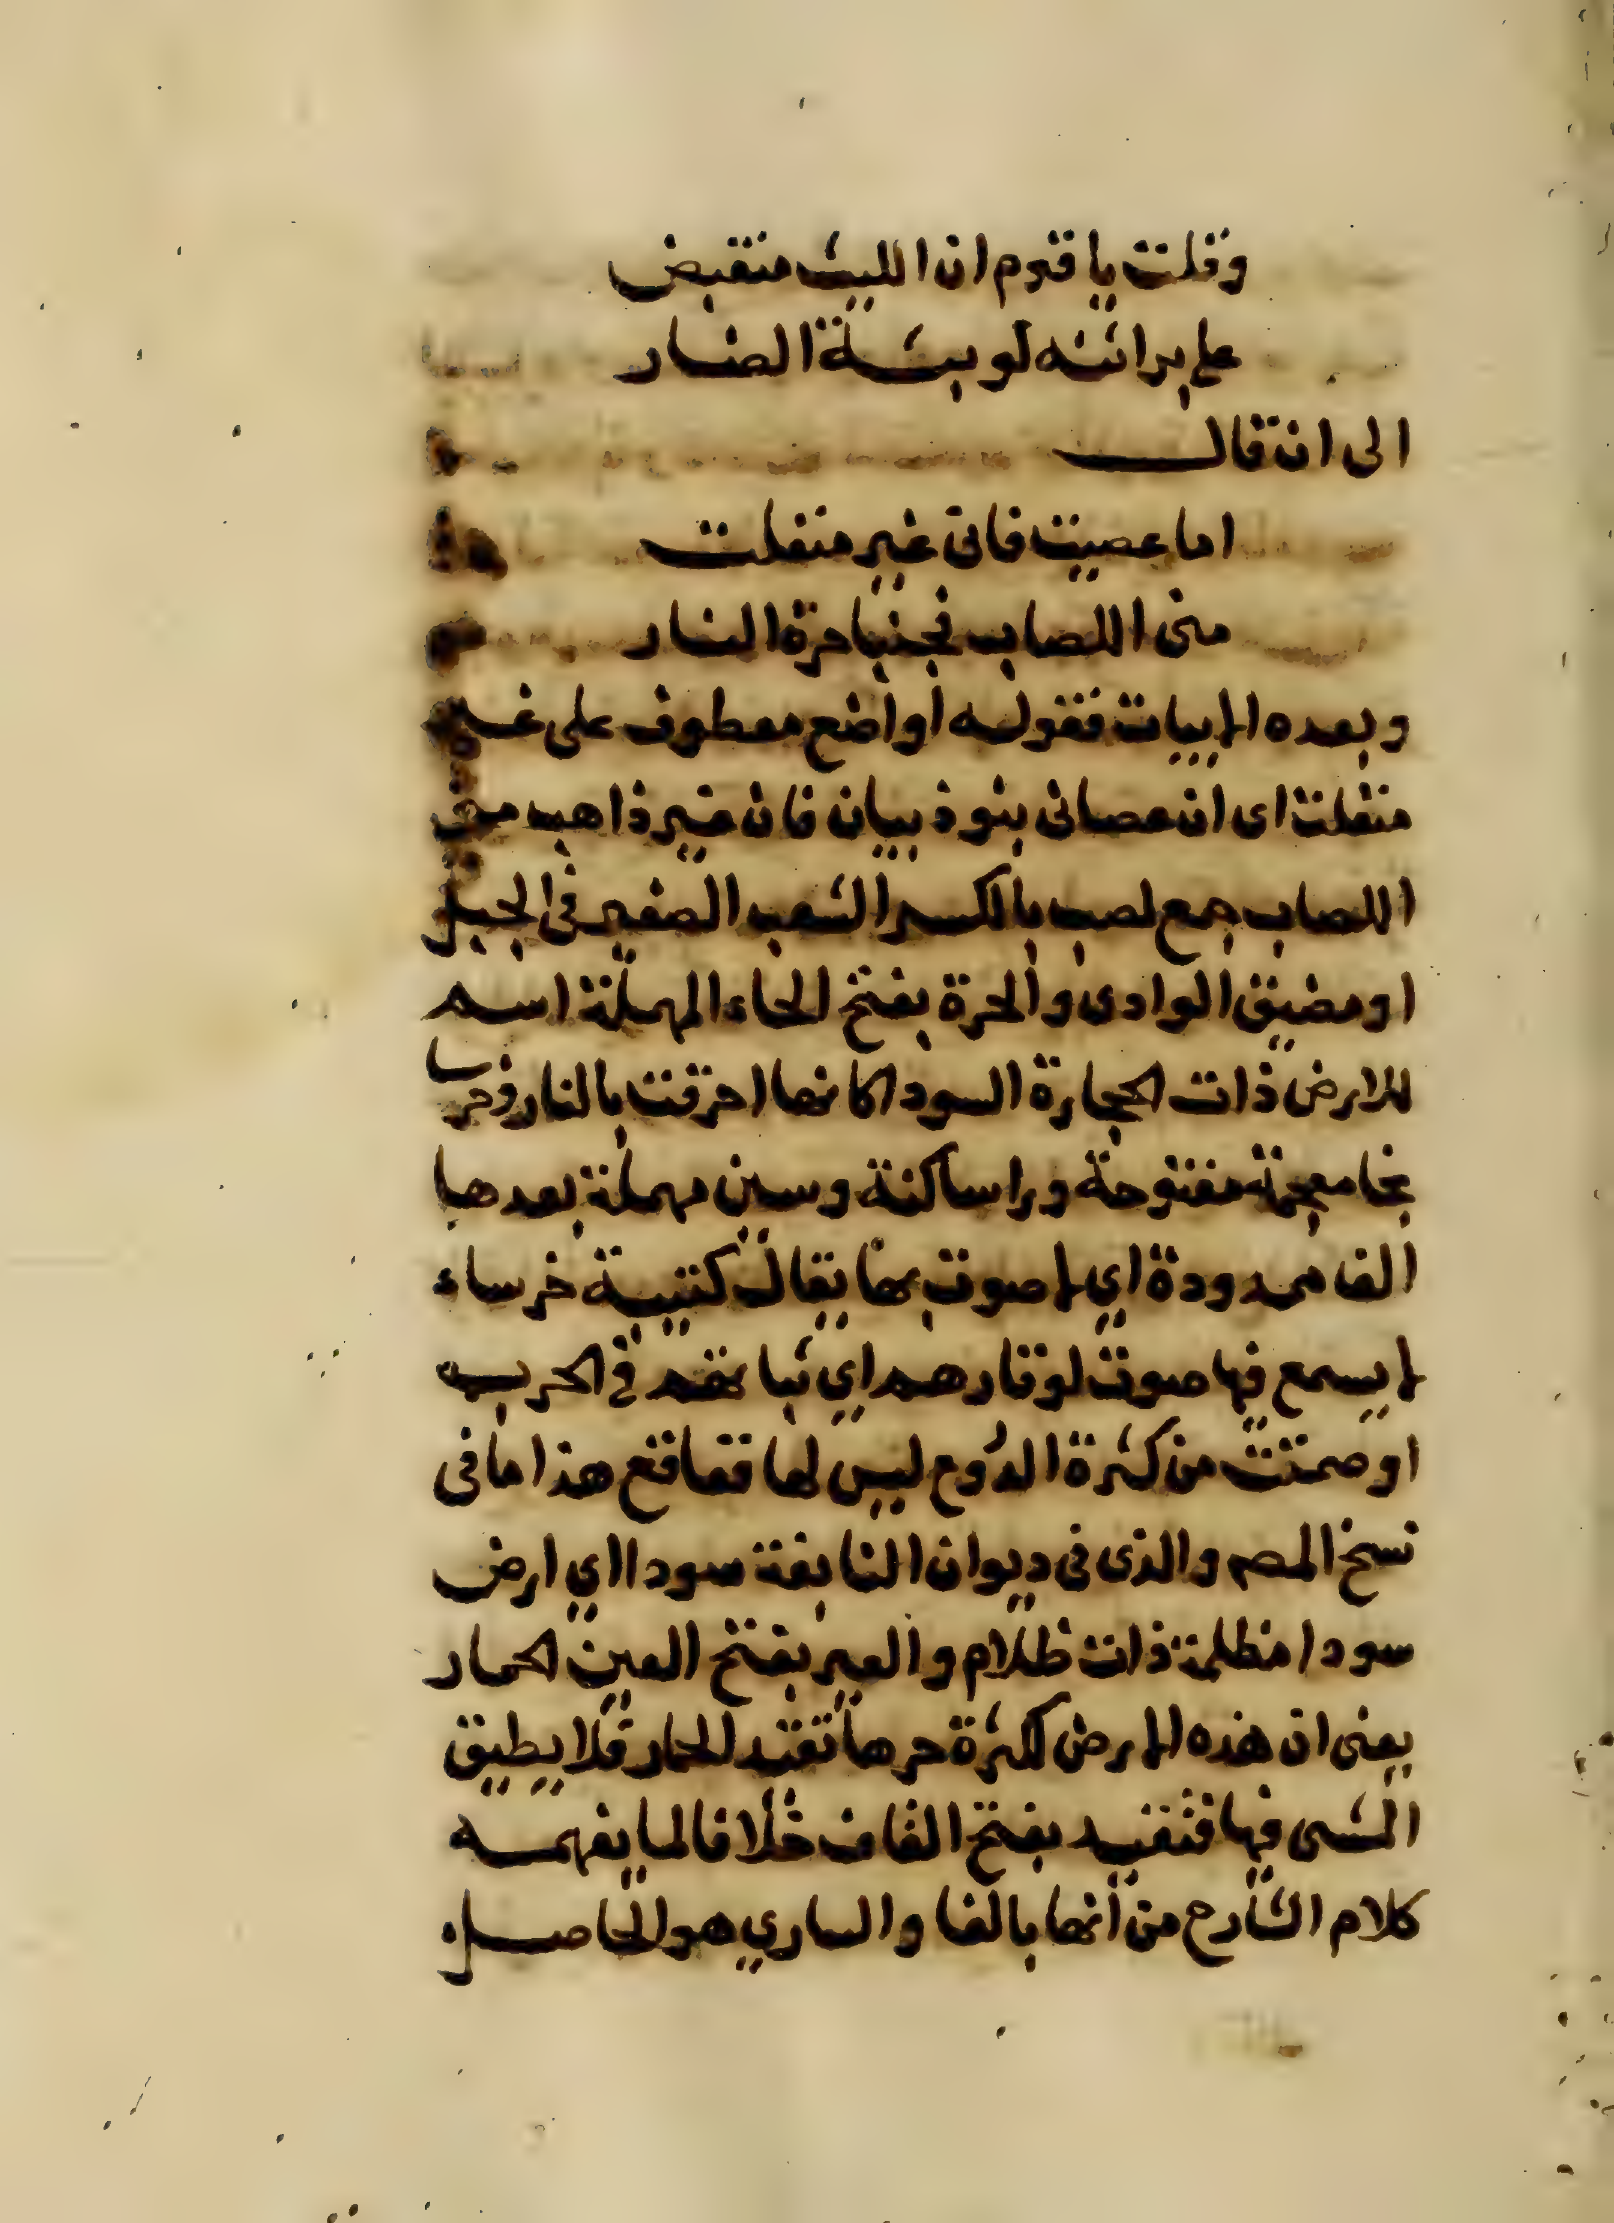 وقلت يا قوم ان الليث منقبض
على براثنه لوثبة الضار
الى ان قال
اما عصيت فاني غير منفلت
منى اللصاب فجنبا حرة النار
وبعده الابيات فقوله او اضع معطوف على غير
منفلت اى ان عصانى بنو ذبيان فان غير ذاهب منى
اللصاب جمع لصب بالكسر الشعب الصغير فى الجبل
او مضيق الوادى والحرة بفتح الحاء المهملة اسم
للارض ذات الحجارة السودا كانها احرقت بالنار وخرسا
بخا معجمة مفتوحة ورا ساكنة وسين مهملة بعدها
الف ممدودة اي لا صوت بها يقال كتيبة خرساء
لا يسمع فيها صوت لوقارهم اي ثباتهم في الحرب
او صمتت من كثرة الدروع ليس لها قعاقع هذا ما فى
نسخ المصـ والذى فى ديوان النابغة سودا اي ارض
سودا مظلمة ذات ظلام والعير بفتح العين الحمار
يعنى ان هذه الارض لكثرة حرها تقيد الحمار فلا يطيق
المشى فيها فتقيد بفتح القاف خلافا لما يفهمه
كلام الشارح من انها بالفا والساري هو الحاصل